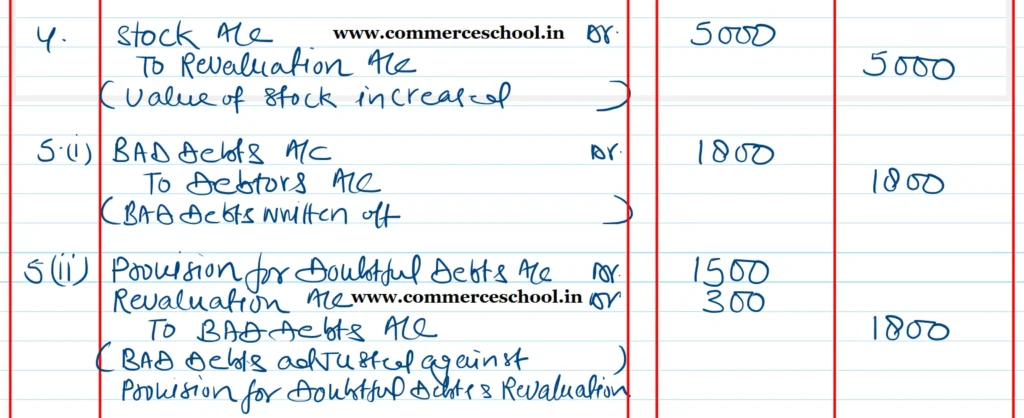 4. Stock A/c www.commerceschool.in Dr. 5000
To Revaluation A/c 5000
(Value of Stock increased)
5.(i) BAD Debts A/C Dr. 1800
To Debtors A/c 1800
(BAD Debts written off)
5(ii) Provision for Doubtful Debts A/c Dr. 1500
Revaluation A/c www.commerceschool.in Dr 300
To BAD Debts A/c 1800
(BAD Debts adjusted against)
Provision for Doubtful Debts & Revaluation